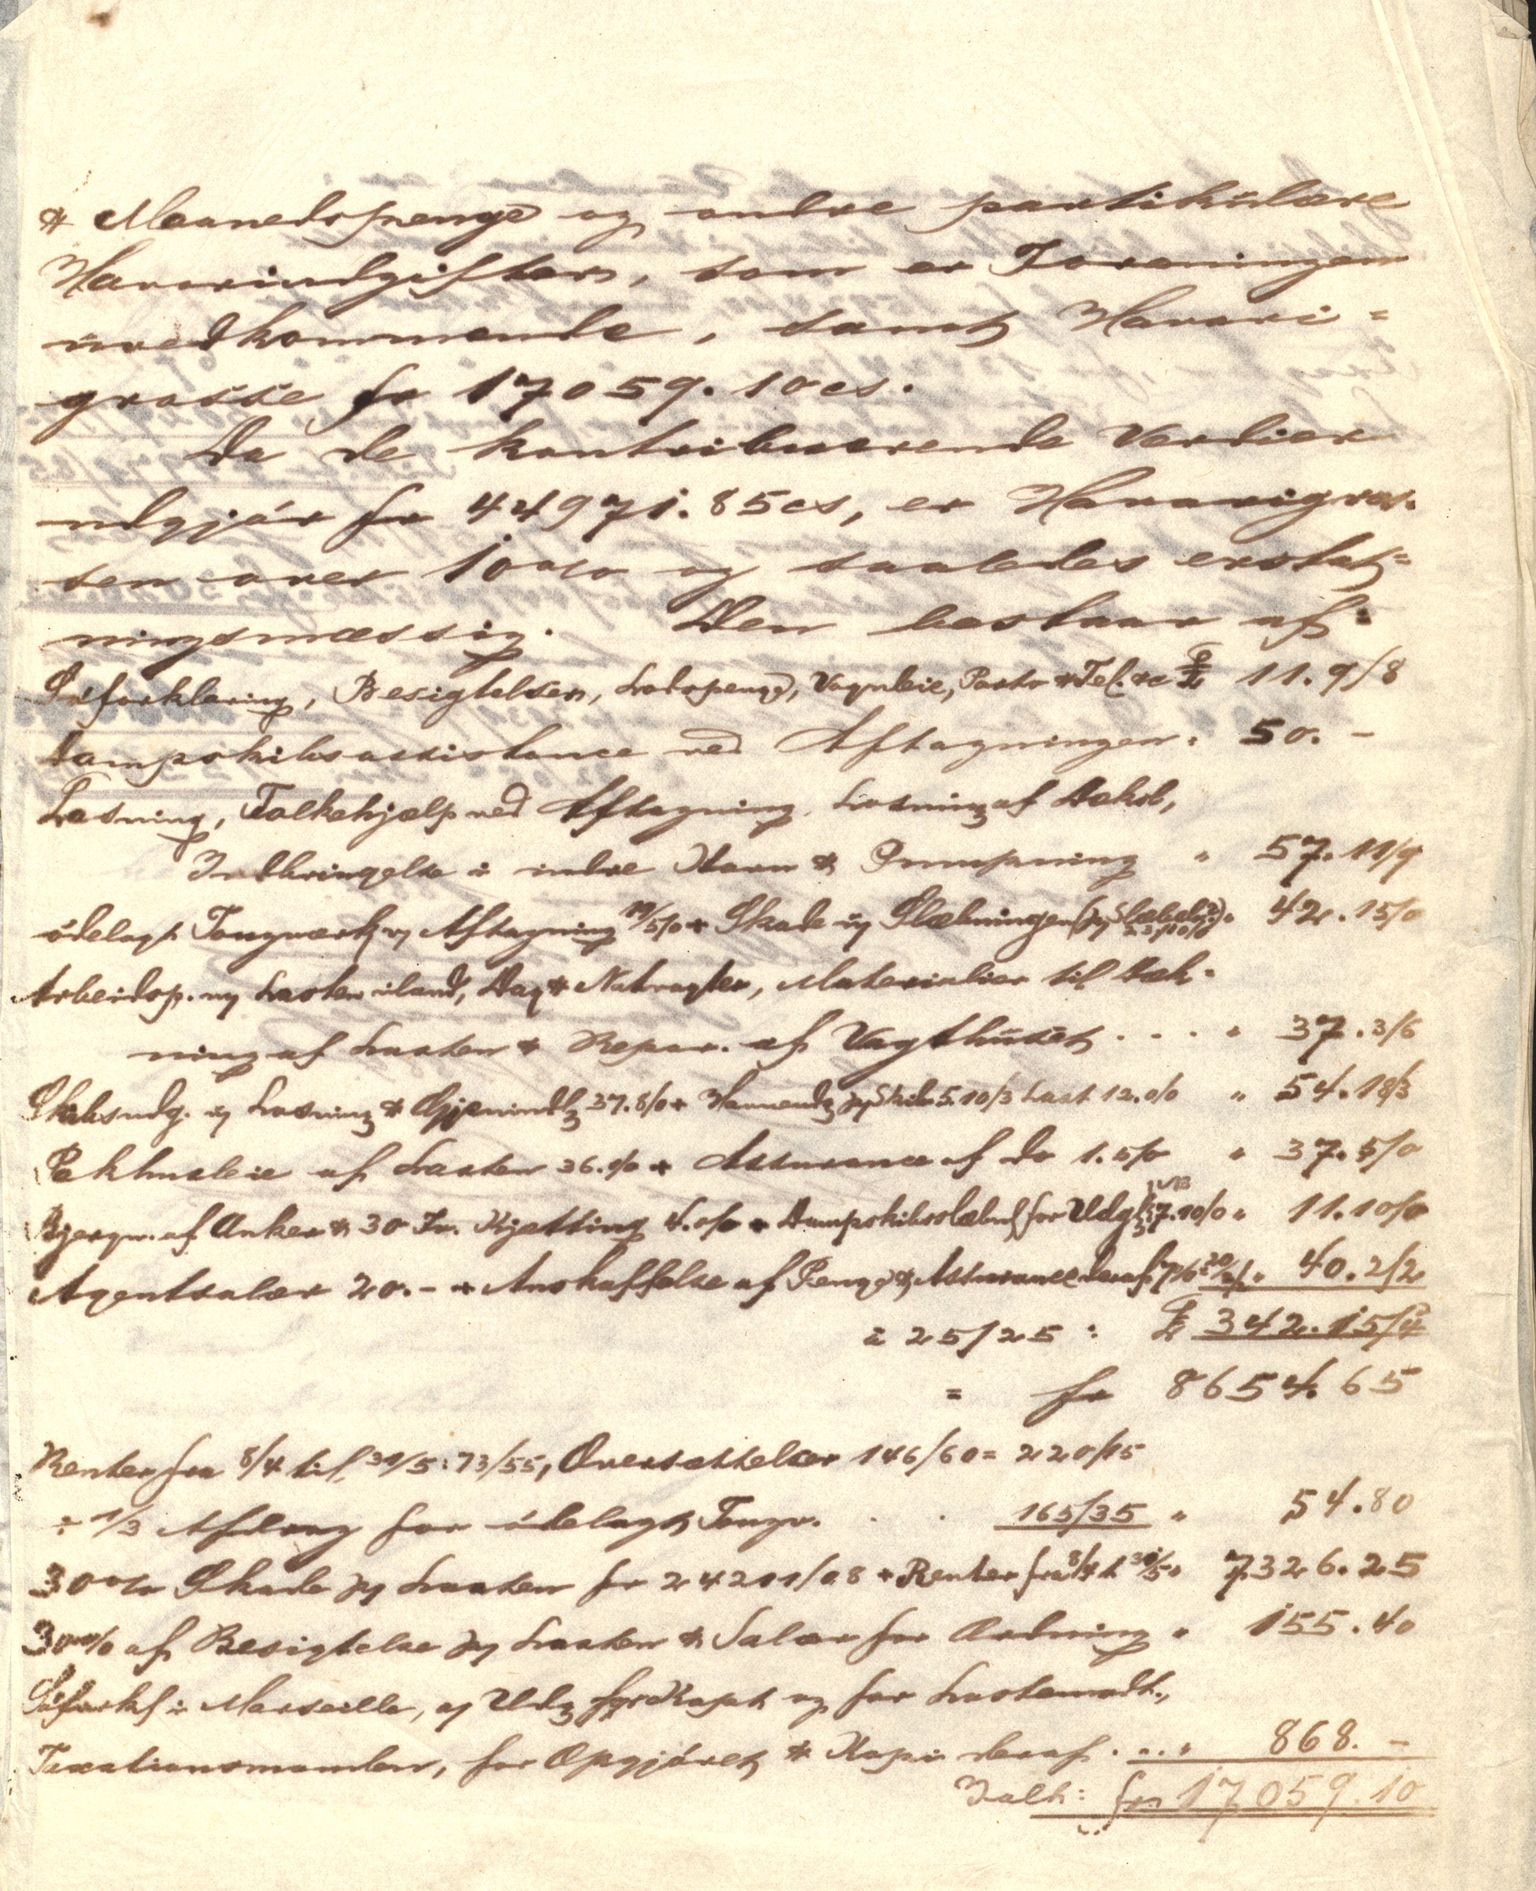 & Maanedspenge og andre partikulære
Havariudgifter, som er Foreningen
uvedkommende, samt Havari =
grosse fr 17059.10 cs.
Da de kontribuerende Værdier
udgjør fr 44971.85 cs, er Havarigros-
sen over 10 % og saaledes erstat=
ningsmæssig. Den bestaar af:
Søforklaring, Besigtelser, Lodspenge, Vognleie, Porto & Tel. &c £ 11.9/8
Dampskibsassistance ved Aftagningen " 50. -
Lösning, Folkehjælp ved Aftagning, Losning af Dæksl,
Indbringelse i indre Havn & Pumpning " 57.11/9
ödelagt Tougværk v Aftagning + Skade v Slæbningen " 42.15/0
Arbeidsp. v Lasten iland, Dag & Natvagter, Materialier til Dæk-
ning af Lasten & Repar. af Vagthuset .... " 37.3/6
Skibsudg. v Losning & Gjenindl 37.8/0 + Havneudg pr Skib 5.10/3 Last 12.0/0 " 54.18/3
Pakhusleie af Lasten 36.0/0 + Assurance af do 1.5/0 " 37.5/0
Bjergn. af Anker & 30 Fv. Kjetting 4.0/0 + Dampskibsslæbn for Udg 7.10/0 " 11.10/0
Agentsalær 20.- + Anskaffelse af Penge & Assurance deraf " 40.2/2
à 25/25 : £ 342.15/4
= fr 8654.65
Renter fra 8/4 til 31/5: 73/55, Oversættelser 146/60 = 220/15
÷ 1/3 Afdrag for ödelagt Tougv. . . 165/35 " 54.80
30 % Skade pa Lasten fr 24201/08 + Renter fra 8/4 t 31/5 " 7326.25
30 % af Besigtelse pa Lasten & Salær for Ordning " 155.40
Söforkl i Marseille, v Udg for Kapt og for Lastemodt.,
Taxationsmanden, for Opgjöret & Kopi deraf . . . " 868. -
Ialt: frs 17059.10